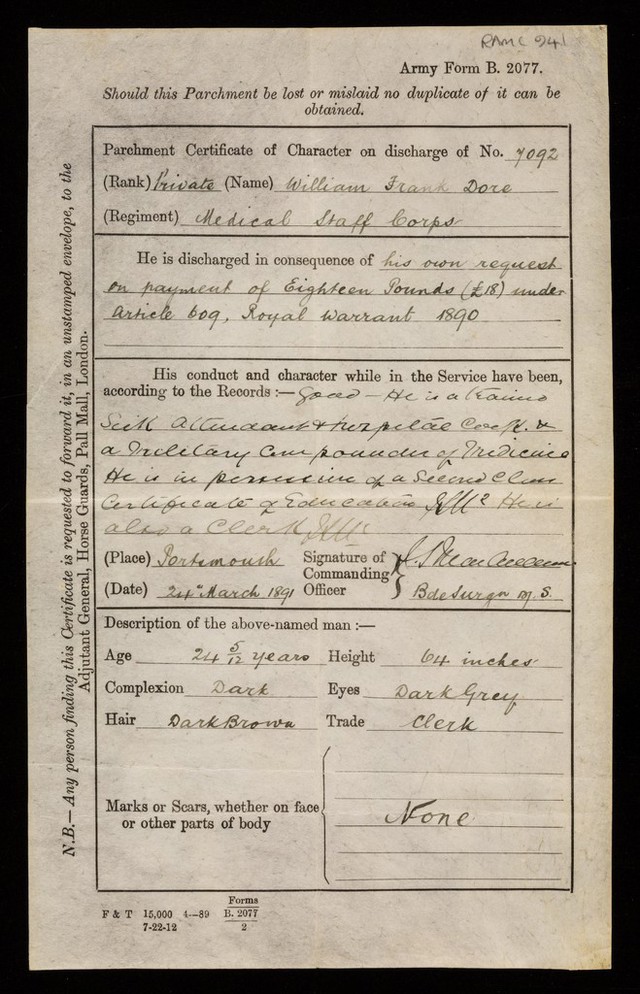 RAMC 941
Army Form B. 2077.
Should this Parchment be lost or mislaid no duplicate of it can be
obtained.
Parchment Certificate of Character on discharge of No. 7092
(Rank) Private (Name) William Frank Dore
(Regiment) Medical Staff Corps
He is discharged in consequence of his own request
on payment of Eighteen Pounds (£18) under
Article 609, Royal Warrant 1890
His conduct and character while in the Service have been,
according to the Records :— Good — He is a trained
Sick Attendant & Hospital Cook. &
a Military Compounder of Medicine
He is in possession of a Second Class
Certificate of Education He is
also a Clerk
(Place) Portsmouth Signature of
Commanding
(Date) 24th March 1891 Officer Bde Surgn M.S.
Description of the above-named man :—
Age 24 5/12 years Height 64 inches
Complexion Dark Eyes Dark Grey
Hair Dark Brown Trade Clerk
Marks or Scars, whether on face
or other parts of body None
Forms
F & T 15,000 4—89 B. 2077
7-22-12 2
N.B.—Any person finding this Certificate is requested to forward it, in an unstamped envelope, to the
Adjutant General, Horse Guards, Pall Mall, London.